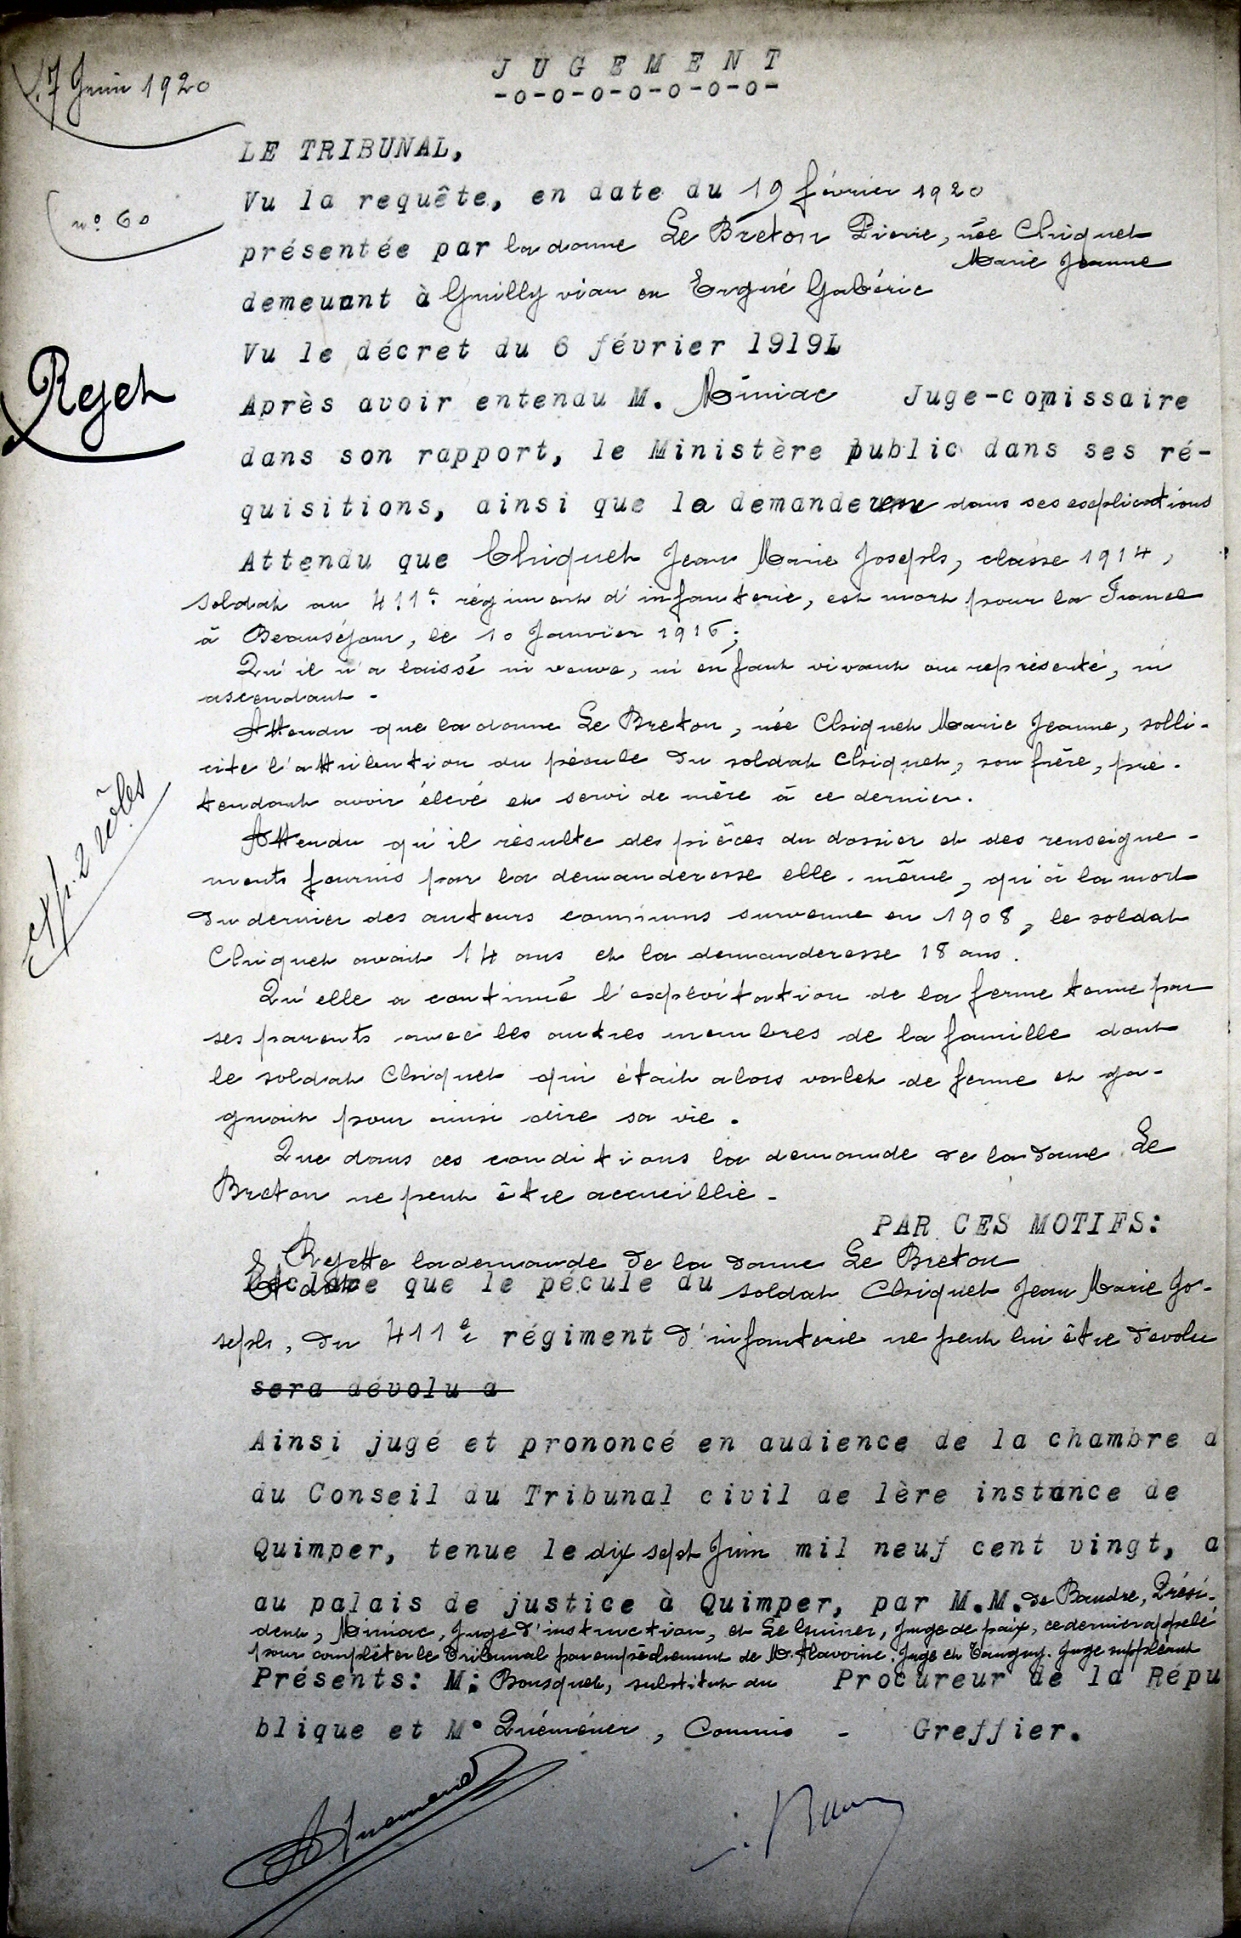 17 Juin 1920
JUGEMENT
-o-o-o-o-o-o-o-
LE TRIBUNAL,
Vu la requête, en date du 19 février 1920
n° 60
présentée par la dame Le Breton Pierre, née Chiquet
Marie Jeanne
demeurant à Guilly vian en Ergué Gabéric
Vu le décret du 6 février 1919
Rejet
Après avoir entendu M. Miniac Juge-comissaire
dans son rapport, le Ministère public dans ses ré-
quisitions, ainsi que la demanderesse dans ses explications
Attendu que Chiquet Jean Marie Joseph, classe 1914,
soldat au 411e régiment d'infanterie, est mort pour la France
à Beauséjour, le 10 Janvier 1916;
Qu'il n'a laissé ni veuve, ni enfant vivant ou représenté, ni
ascendant.
Attendu que la dame Le Breton, née Chiquet Marie Jeanne, solli-
cite l'attribution du pécule du soldat Chiquet, son frère, pré-
tendant avoir élevé et servi de mère à ce dernier.
exp. 2 rôles
Attendu qu'il résulte des pièces du dossier et des renseigne-
ments fournis par la demanderesse elle-même, qu'à la mort
du dernier des auteurs communs survenue en 1908, le soldat
Chiquet avait 14 ans et la demanderesse 18 ans.
Qu'elle a continué l'exploitation de la ferme tenue par
ses parents avec les autres membres de la famille dont
le soldat Chiquet qui était alors valet de ferme et ga-
gnait pour ainsi dire sa vie.
Que dans ces conditions la demande de la dame Le
Breton ne peut être accueillie.
PAR CES MOTIFS:
Rejette la demande de la dame Le Breton
Déclare que le pécule du soldat Chiquet Jean Marie Jo-
seph, du 411e régiment d'infanterie ne peut lui être dévolu
sera dévolu à
Ainsi jugé et prononcé en audience de la chambre d
du Conseil du Tribunal civil de 1ère instance de
Quimper, tenue le dix sept Juin mil neuf cent vingt, a
au palais de justice à Quimper, par M.M. de Baudre, Prési-
dent, Miniac, Juge d'instruction, et Le Guiner, Juge de paix, ce dernier appelé
pour compléter le Tribunal par empêchement de M. Flavoine, Juge et Tanguy, Juge suppléant
Présents: M: Bousquet, substitut du Procureur de la Répu
blique et M° Quéméner, Commis - Greffier.